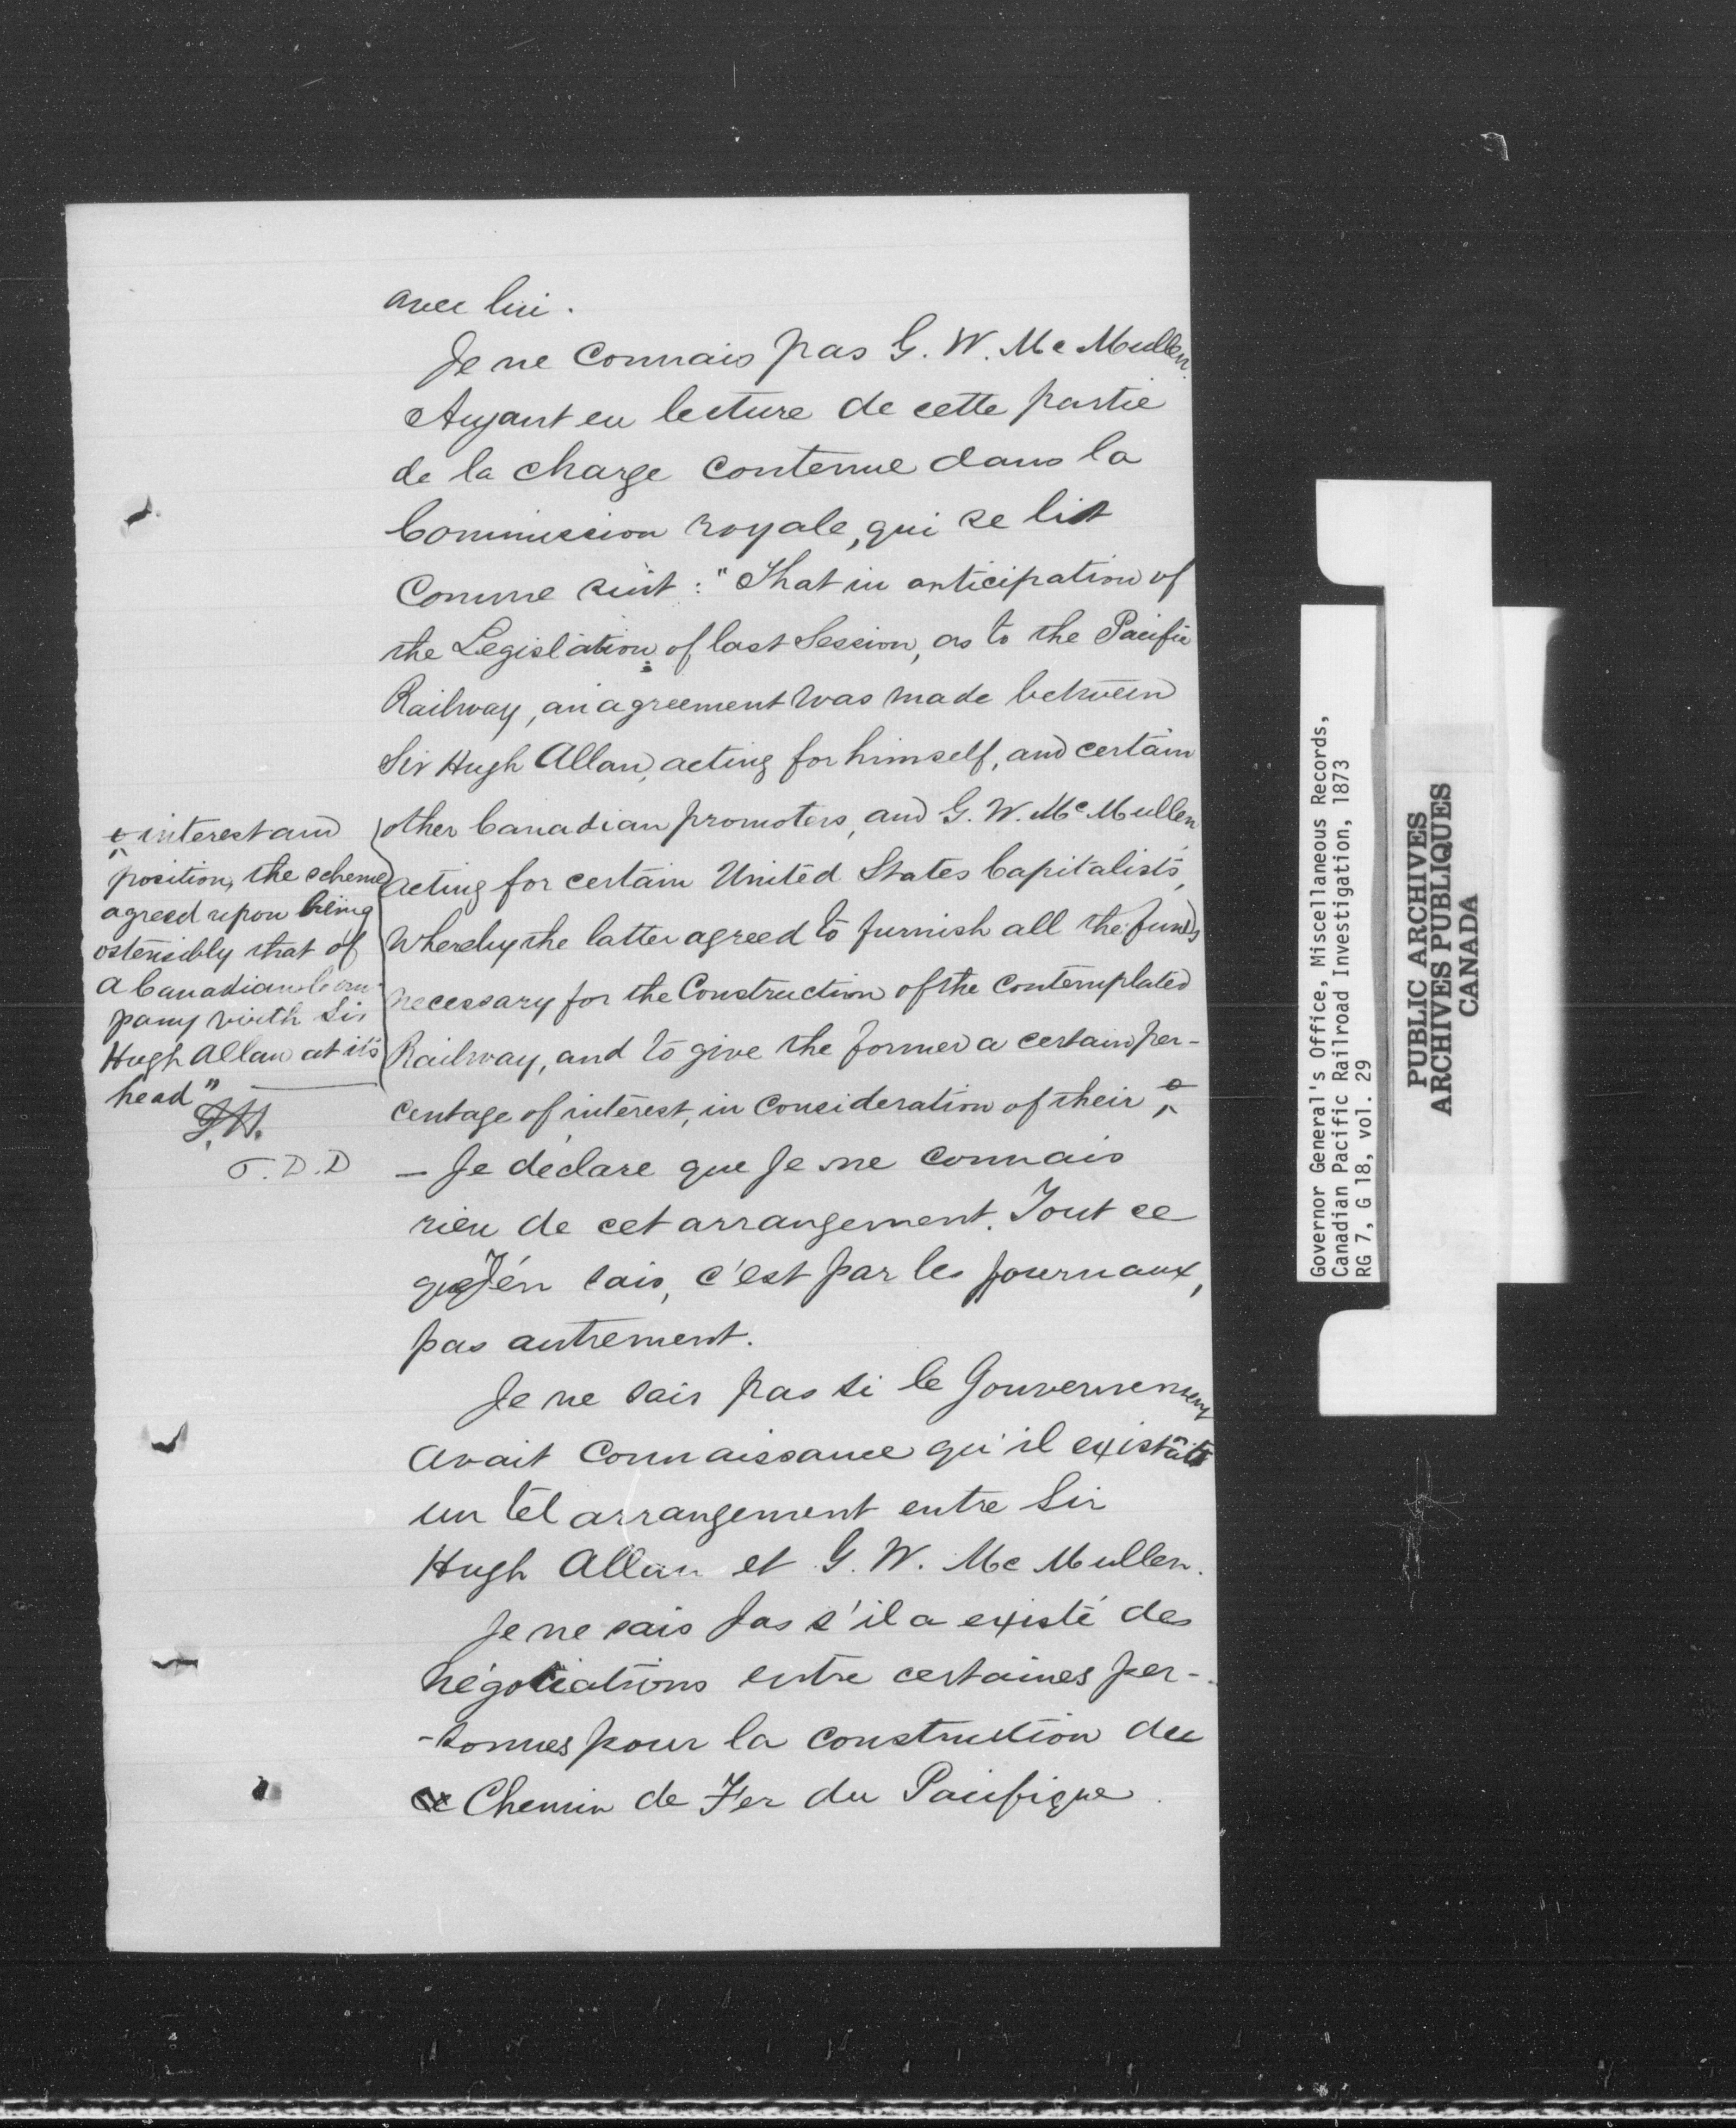 avec lui.
Je ne connais pas G. W. McMullen.
Ayant eu lecture de cette partie
de la charge contenue dans la
Commission royale, qui se lit
comme suit : "That in anticipation of
the Legislation of last Session, as to the Pacific
Railway, an agreement was made between
Sir Hugh Allan, acting for himself, and certain
other Canadian promoters, and G. W. McMullen
acting for certain United States Capitalists,
whereby the latter agreed to furnish all the funds
necessary for the Construction of the contemplated
Railway, and to give the former a certain per-
centage of interest, in consideration of their
interest and
position, the scheme
agreed upon being
ostensibly that of
a Canadian Com-
pany with Sir
Hugh Allan at its
head"
T.D.D
— Je déclare que Je ne connais
rien de cet arrangement. Tout ce
que J'en sais, c'est par les journaux,
pas autrement.
Je ne sais pas si le Gouvernement
avait connaissance qu'il existât
un tel arrangement entre Sir
Hugh Allan et G. W. McMullen.
Je ne sais pas s'il a existé des
négotiations entre certaines per-
-sonnes pour la construction du
Chemin de Fer du Pacifique.
Governor General's Office, Miscellaneous Records,
Canadian Pacific Railroad Investigation, 1873
RG 7, G 18, vol. 29
PUBLIC ARCHIVES
ARCHIVES PUBLIQUES
CANADA